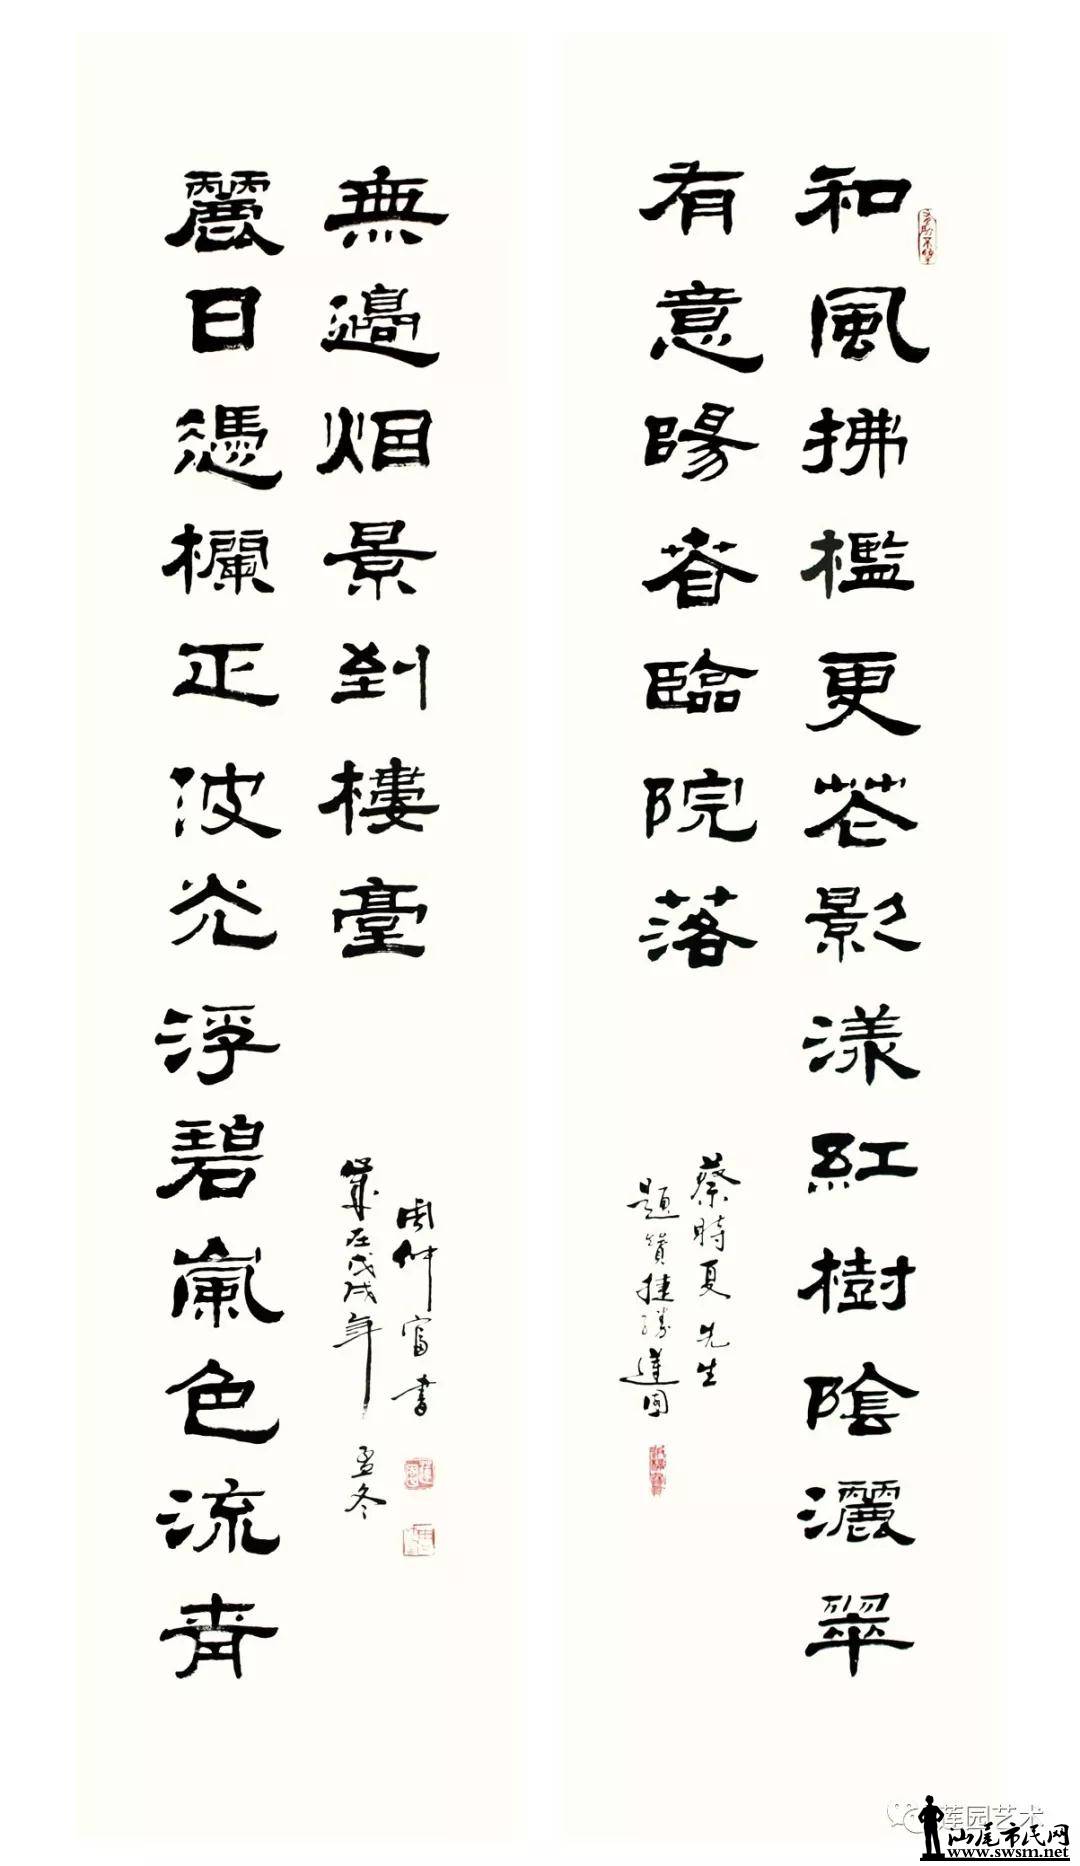 和風拂檻更花影漾紅樹陰灑翠
有意暘春臨院落
蔡時夏先生
題贊捷勝蓮園
麗日憑欄正波光浮碧嵐色流青
無邊烟景到樓臺
歲在戊戌年孟冬
周仲富書
莲园艺术
汕尾市民网
www.swsm.net